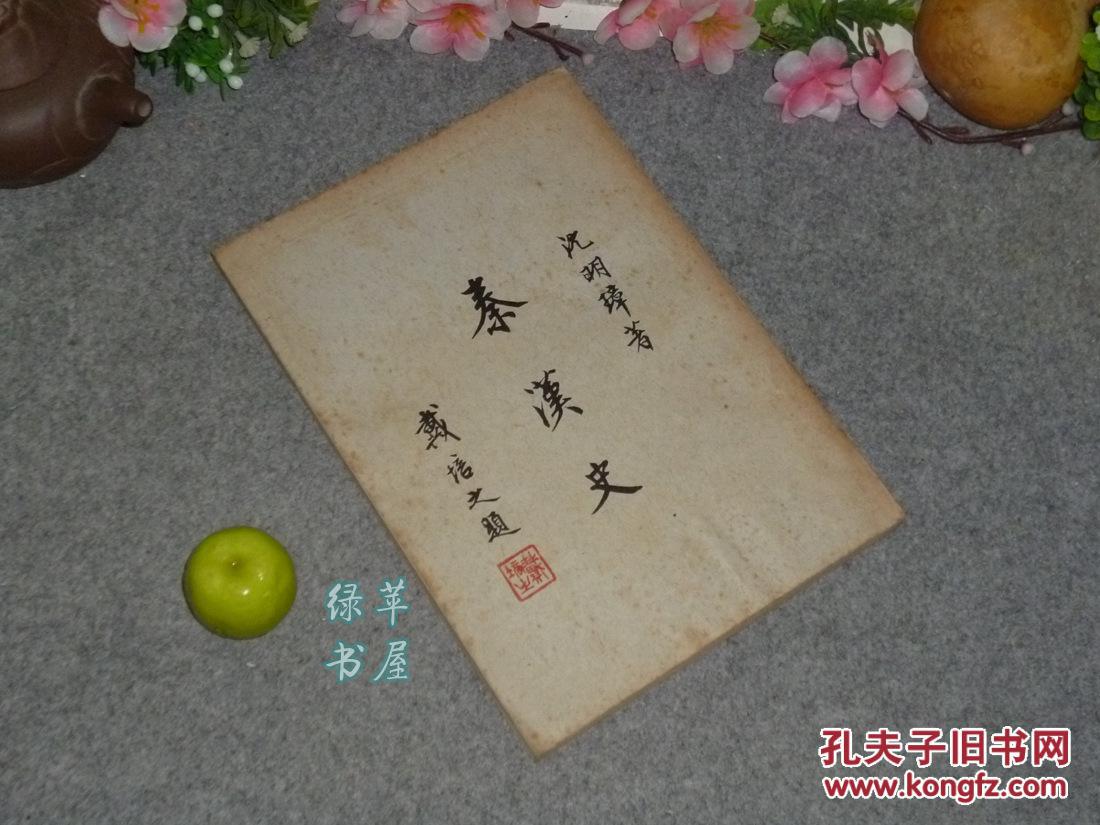 沈明璋著
秦漢史
戴培之題
绿苹
书屋
孔夫子旧书网
www.kongfz.com